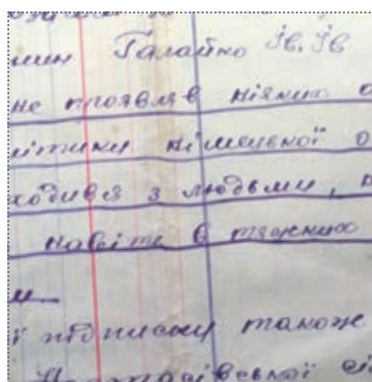 мин Галайко Ів. Ів
не проявляв ніяких о
літики німецької о
ходився з людьми, п
навіть в тяжких
м
ї підписом також